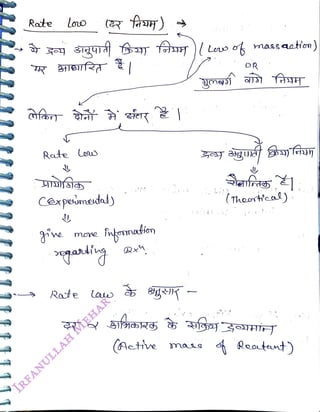 Rate Low (दर नियम) →
→ ये द्रव्य अनुपाती क्रिया नियम (Low of mass action)
पर आधारित है| OR
गुलबर्ग वागे नियम
लेकिन दोनों में अंतर है|
Rate Low द्रव्य अनुपाती क्रिया नियम
⇓ ⇓
प्रायोगिक सैद्धान्तिक है|
(Experimental) (Theortical)
⇓
give more information
regarding Rxⁿ.
→ Rate law के अनुसार -
दर ∝ अभिकारक के सक्रिय द्रव्यमान
(Active mass of Reatant)
IRFANULLAH MEHAR